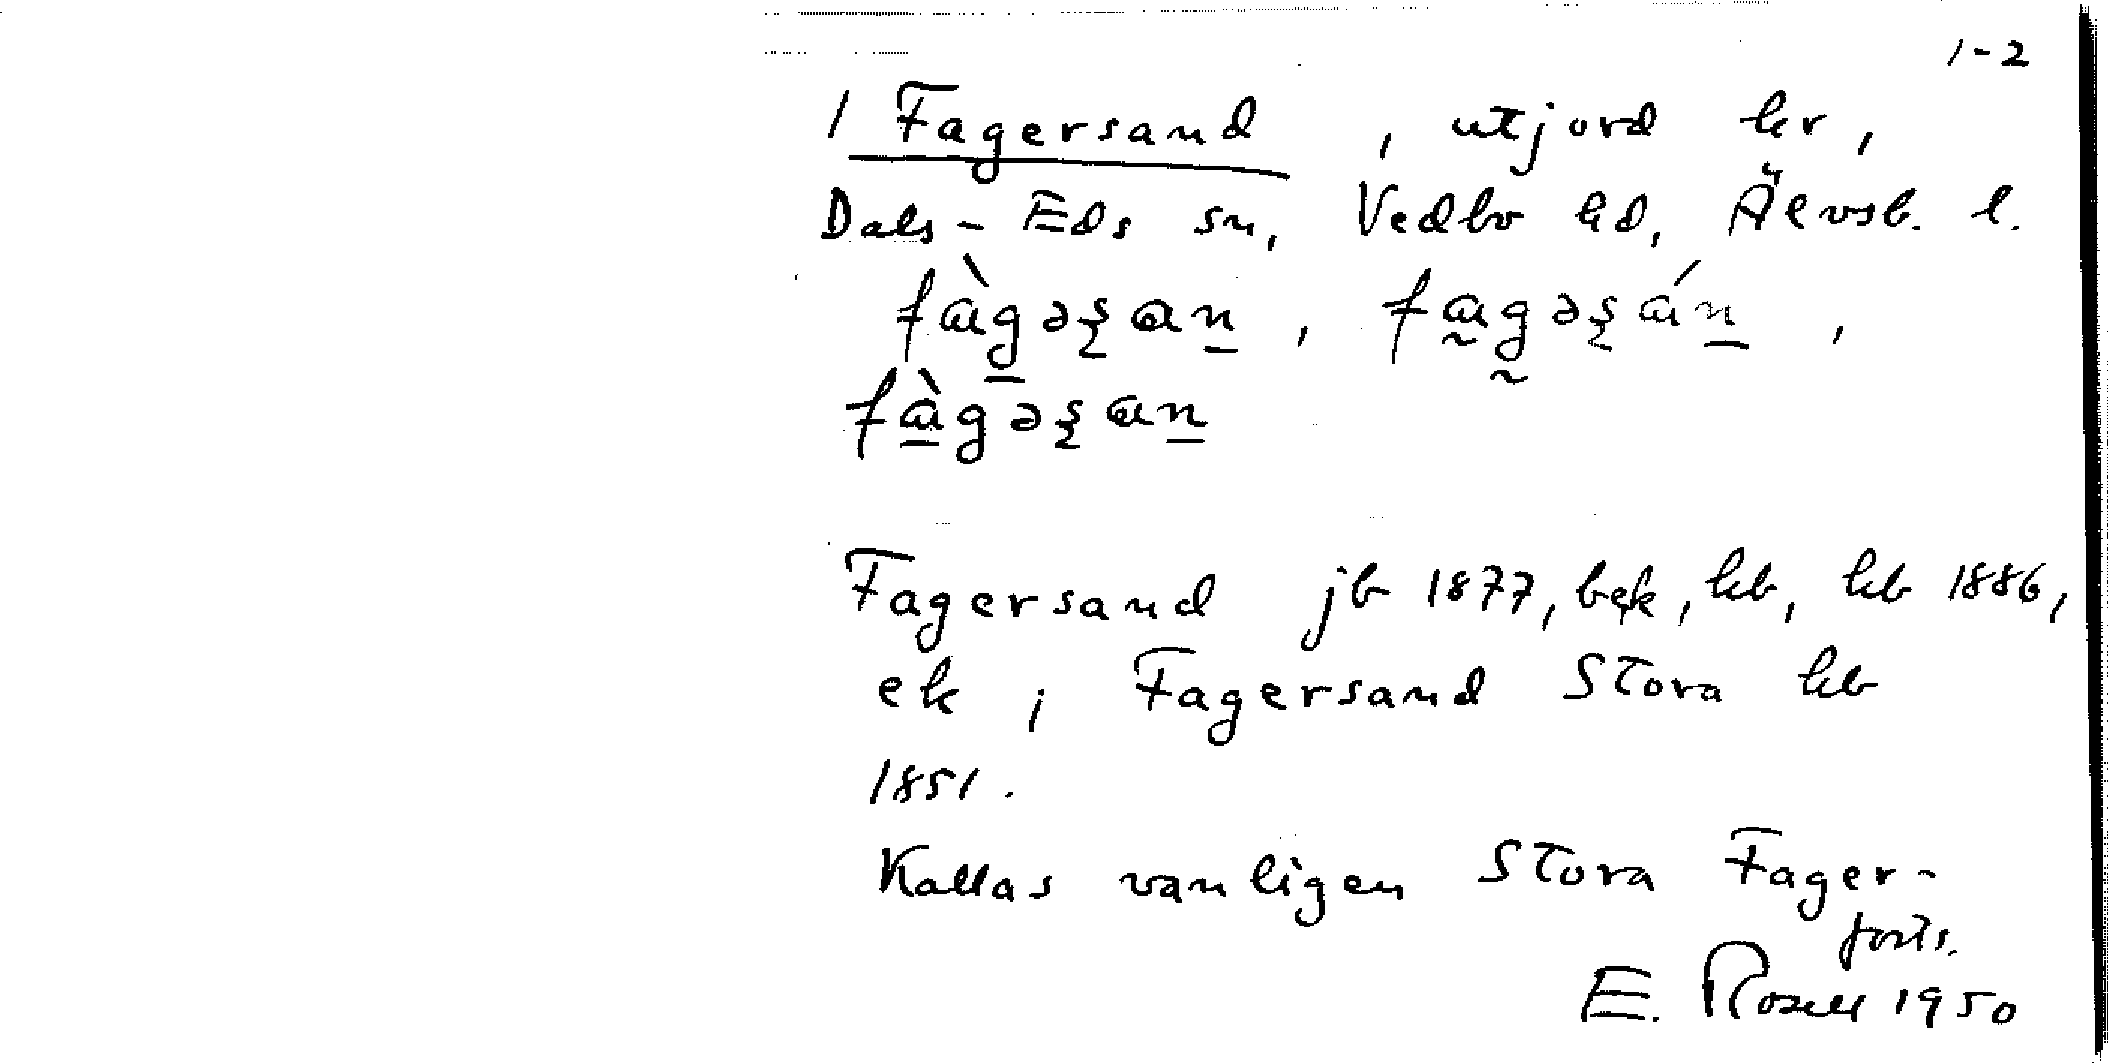 1-2
1 Fagersand, utjord kr,
Dals-Eds sn, Vedbo hd, Älvsb. l.
fàgəʂan, fagəʂán,
fàgəʂan
Fagersand jb 1877, bek, kb, hb 1886,
ek; Fagersand Stora hb
1851.
Kallas vanligen Stora Fager-
forts.
E. Rosell 1950